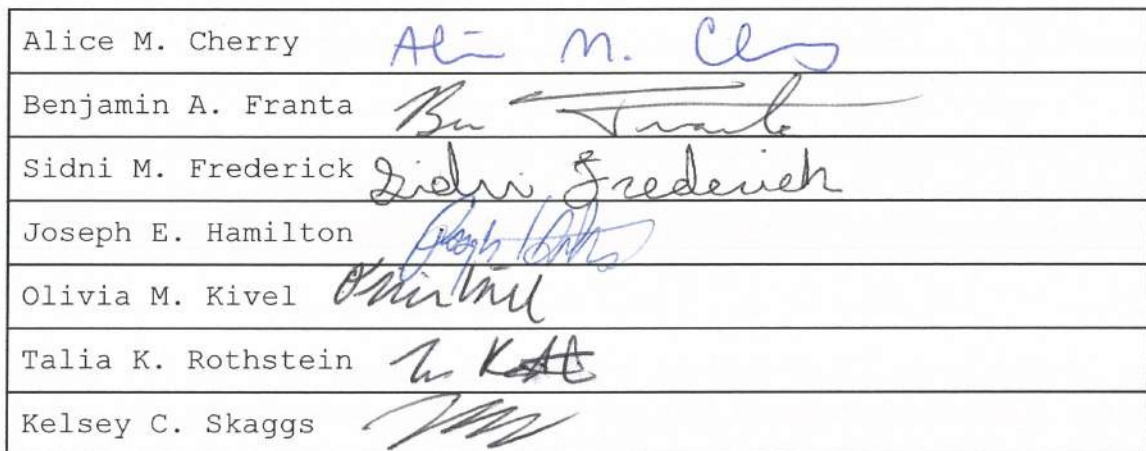 Alice M. Cherry Ali M. Ch
Benjamin A. Franta Ben Franta
Sidni M. Frederick Sidni Frederick
Joseph E. Hamilton Joseph
Olivia M. Kivel
Talia K. Rothstein
Kelsey C. Skaggs